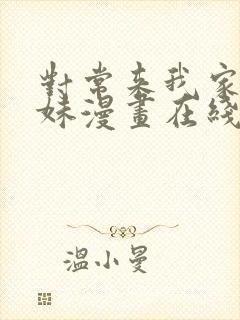 對常來我家
妹漫畫在綫
溫小曼